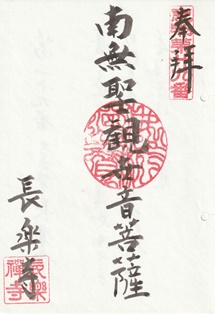 奉拝
南無聖観世音菩薩
長楽寺